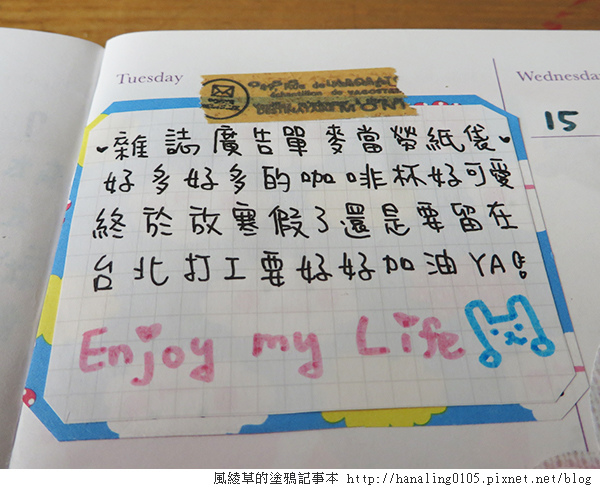 Tuesday
Wednesda
15
雜誌廣告單麥當勞紙袋
好多好多的咖啡杯好可愛
終於放寒假了還是要留在
台北打工要好好加油YA!
Enjoy my Life
風綾草的塗鴉記事本 http://hanaling0105.pixnet.net/blog